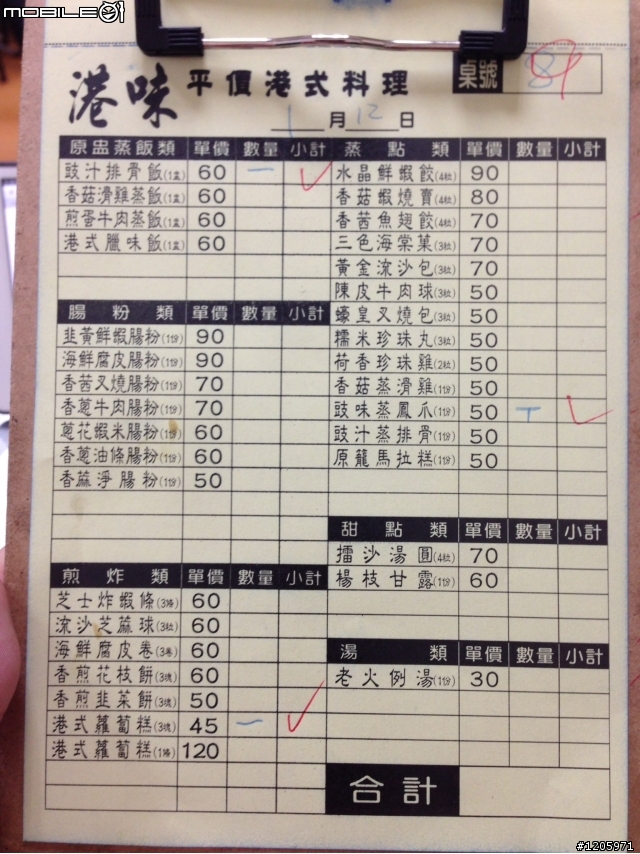 MOBILE01
港味 平價港式料理
桌號 9
1月12日
原盅蒸飯類 單價 數量 小計
豉汁排骨飯(1盅) 60 一
香菇滑雞蒸飯(1盅) 60
煎蛋牛肉蒸飯(1盅) 60
港式臘味飯(1盅) 60
腸粉類 單價 數量 小計
韭黃鮮蝦腸粉(1份) 90
海鮮腐皮腸粉(1份) 90
香茜叉燒腸粉(1份) 70
香蔥牛肉腸粉(1份) 70
蔥花蝦米腸粉(1份) 60
香蔥油條腸粉(1份) 60
香蔴淨腸粉(1份) 50
煎炸類 單價 數量 小計
芝士炸蝦條(3條) 60
流沙芝蔴球(3粒) 60
海鮮腐皮卷(3卷) 60
香煎花枝餅(3塊) 60
香煎韭菜餅(3塊) 50
港式蘿蔔糕(3塊) 45 一
港式蘿蔔糕(1條) 120
蒸點類 單價 數量 小計
水晶鮮蝦餃(4粒) 90
香菇蝦燒賣(4粒) 80
香茜魚翅餃(4粒) 70
三色海棠菓(3粒) 70
黃金流沙包(3粒) 70
陳皮牛肉球(3粒) 50
蠔皇叉燒包(3粒) 50
糯米珍珠丸(3粒) 50
荷香珍珠雞(2粒) 50
香菇蒸滑雞(1份) 50
豉味蒸鳳爪(1份) 50 一
豉汁蒸排骨(1份) 50
原籠馬拉糕(1份) 50
甜點類 單價 數量 小計
擂沙湯圓(4粒) 70
楊枝甘露(1份) 60
湯類 單價 數量 小計
老火例湯(1份) 30
合計
#1205971